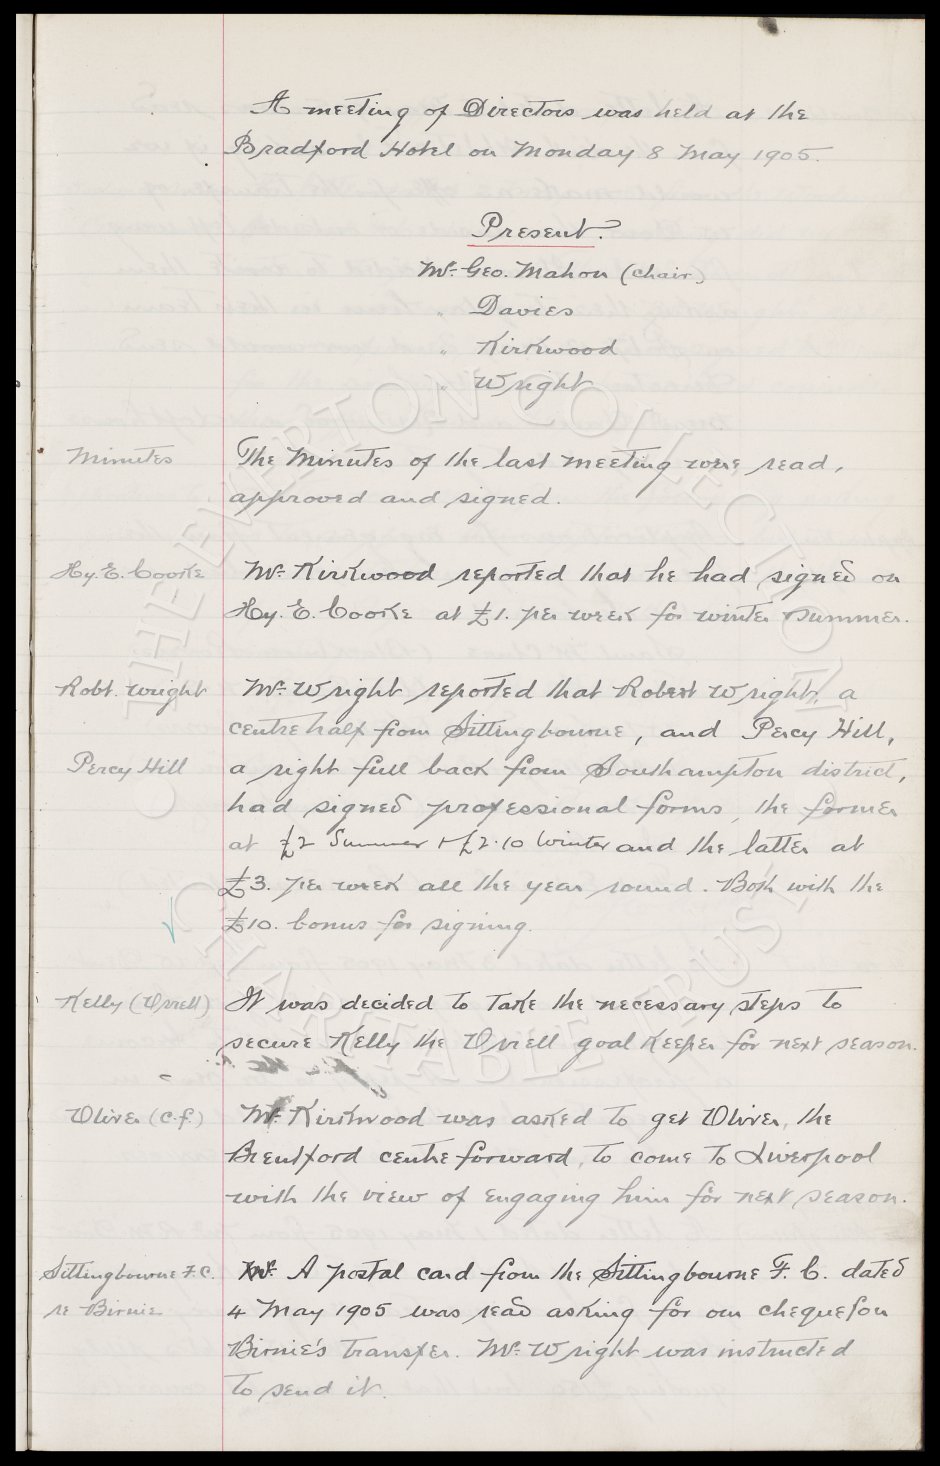 A meeting of Directors was held at the
Bradford Hotel on Monday 8 May 1905.
Present.
Mr. Geo. Mahon (chair)
" Davies
" Kirkwood
" Wright
Minutes
The Minutes of the last meeting were read,
approved and signed.
Hy. E. Cooke
Mr. Kirkwood reported that he had signed on
Hy. E. Cooke at £1. per week for winter & summer.
Robt. Wright
Mr. Wright reported that Robert Wright, a
centre half from Sittingbourne, and Percy Hill,
Percy Hill
a right full back from Southampton district,
had signed professional forms, the former
at £2 Summer & £2.10 Winter and the latter at
£3. per week all the year round. Both with the
£10. bonus for signing.
Kelly (Orrell)
It was decided to take the necessary steps to
secure Kelly the Orrell goal keeper for next season.
Oliver (c.f.)
Mr. Kirkwood was asked to get Oliver, the
Brentford centre forward, to come to Liverpool
with the view of engaging him for next season.
Sittingbourne F.C.
re Birnie
Mr. A postal card from the Sittingbourne F. C. dated
4 May 1905 was read asking for our cheque for
Birnie's transfer. Mr. Wright was instructed
to send it.
THE EVERTON COLLECTION
CHARITABLE TRUST